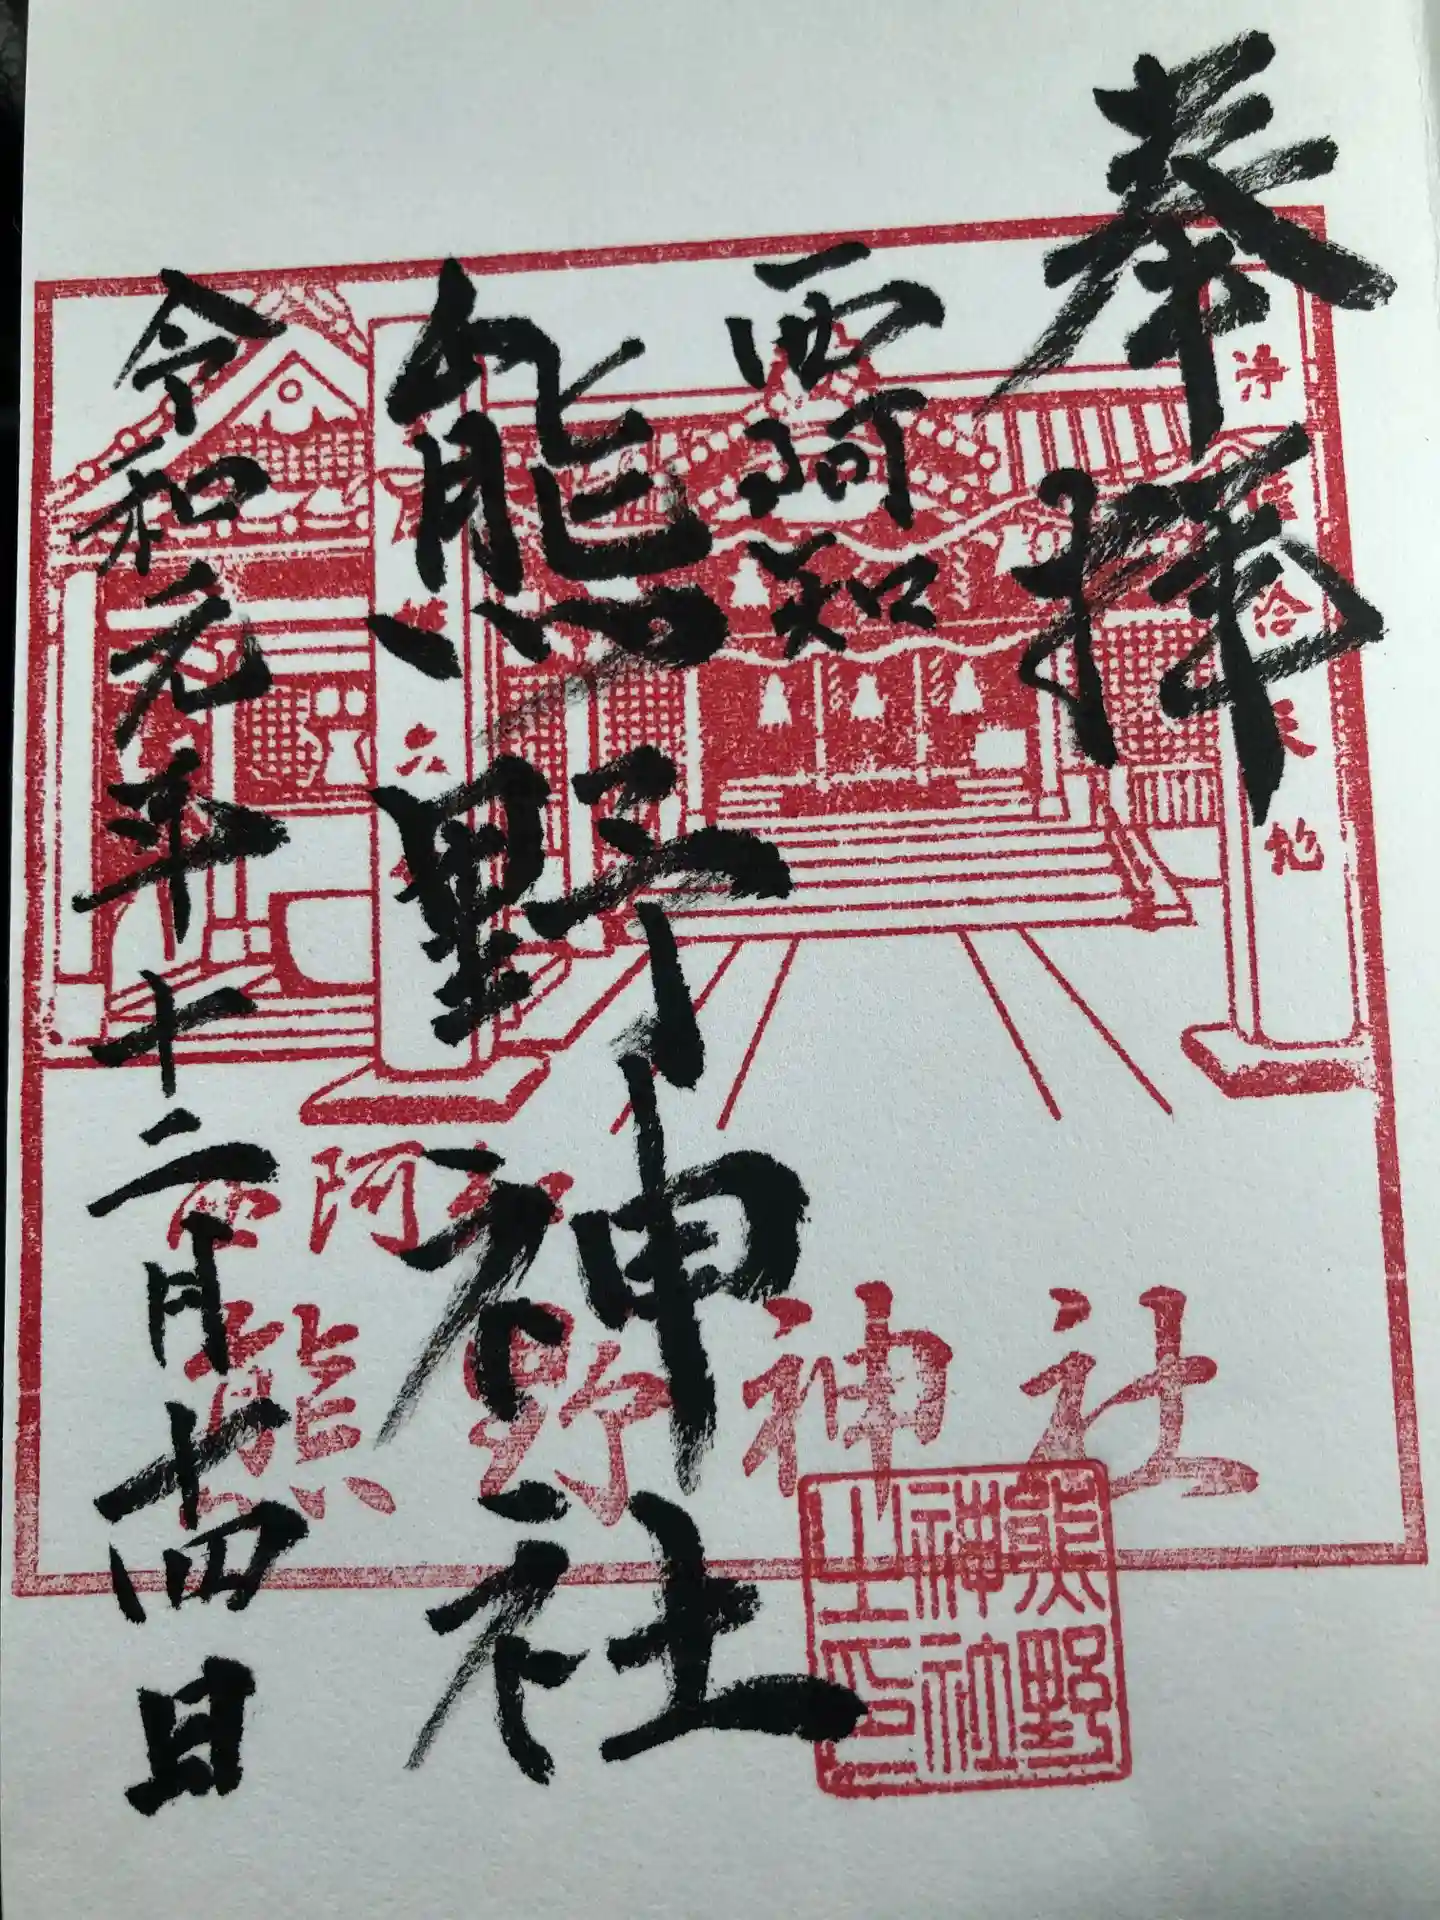 奉拝
西阿知
熊野神社
令和元年十二月十四日
阿
熊野神社
熊野
神社
之印